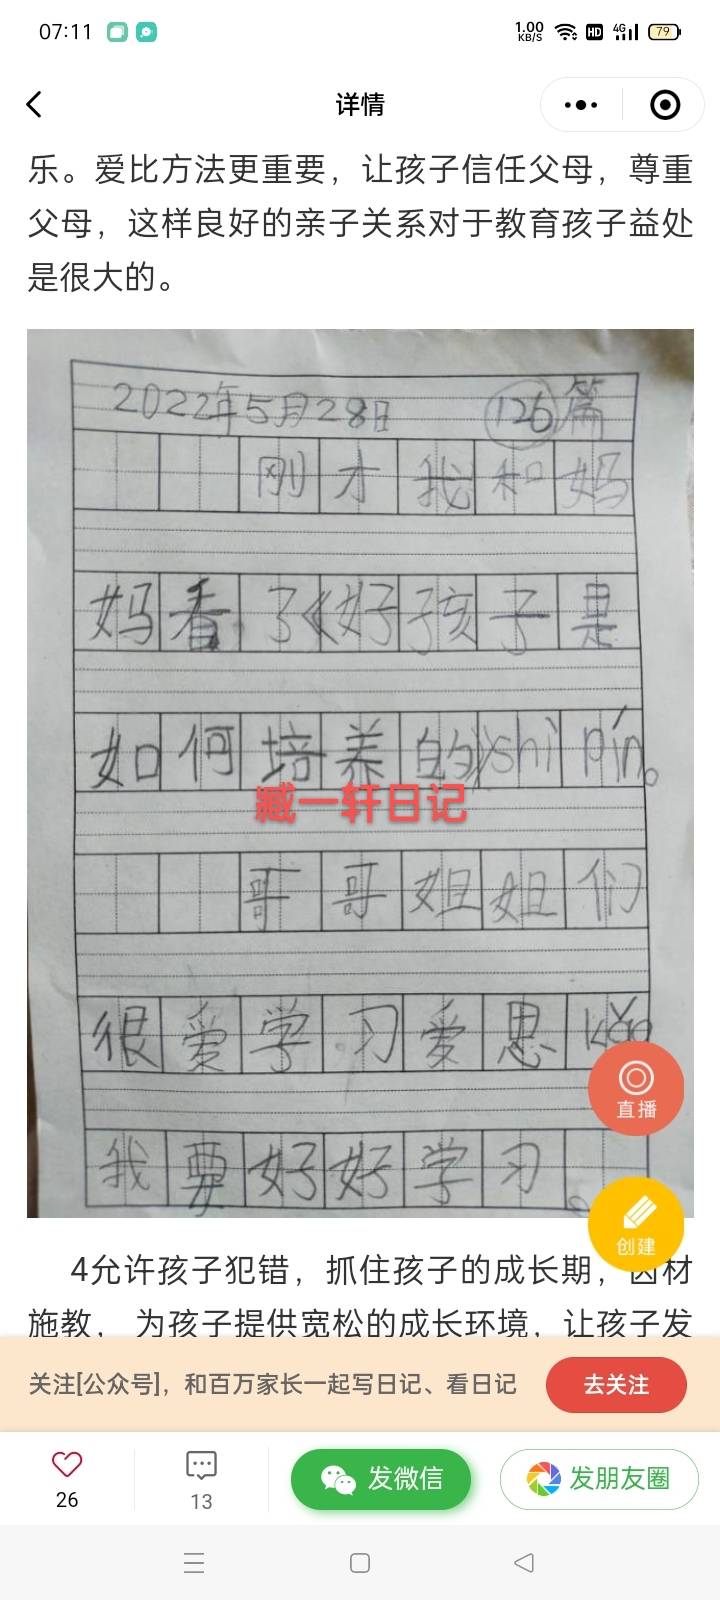 07:11
1.00 KB/S HD 4G 79
详情
乐。爱比方法更重要，让孩子信任父母，尊重
父母，这样良好的亲子关系对于教育孩子益处
是很大的。
2022年5月28日 126篇
刚才我和妈
妈看了《好孩子是
如何培养的》shì pín。
臧一轩日记
哥哥姐姐们
很爱学习爱思kǎo
我要好好学习。
直播
创建
4允许孩子犯错，抓住孩子的成长期，因材
施教， 为孩子提供宽松的成长环境，让孩子发
关注[公众号]，和百万家长一起写日记、看日记
去关注
26
13
发微信
发朋友圈